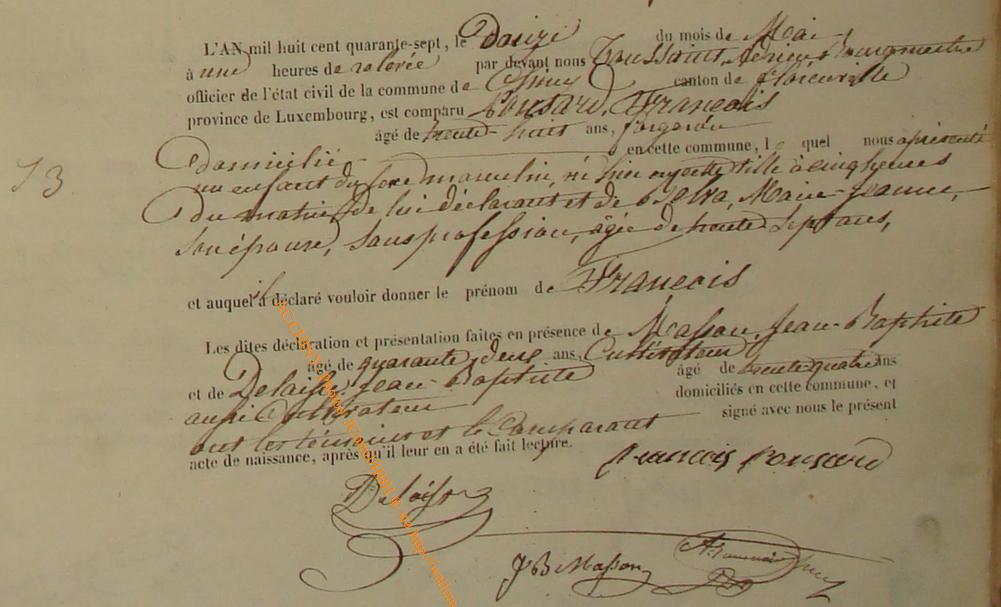 L'AN mil huit cent quarante-sept, le Douze du mois de Mai
à une heures de relevée par devant nous Toussaint, Bourgmestre
officier de l'état civil de la commune de canton de Florenville
province de Luxembourg, est comparu Ponsard, François
âgé de trente-huit ans, forgeron
13
Domicilié en cette commune, le quel nous a présenté
un enfant du sexe masculin, né hier onzette à cinq heures
du matin, de lui déclarant et de Marie-Jeanne,
son épouse, sans profession, âgée de trente Sept ans,
et auquel il a déclaré vouloir donner le prénom de François
Les dites déclaration et présentation faites en présence de Masson, Jean-Baptiste
âgé de quarante deux ans, Cultivateur
et de Jean-Baptiste âgé de trente quatre ans
aussi Cultivateur domiciliés en cette commune, et
ont les témoins et le Comparant signé avec nous le présent
acte de naissance, après qu'il leur en a été fait lecture.
François Ponsard
JB Masson